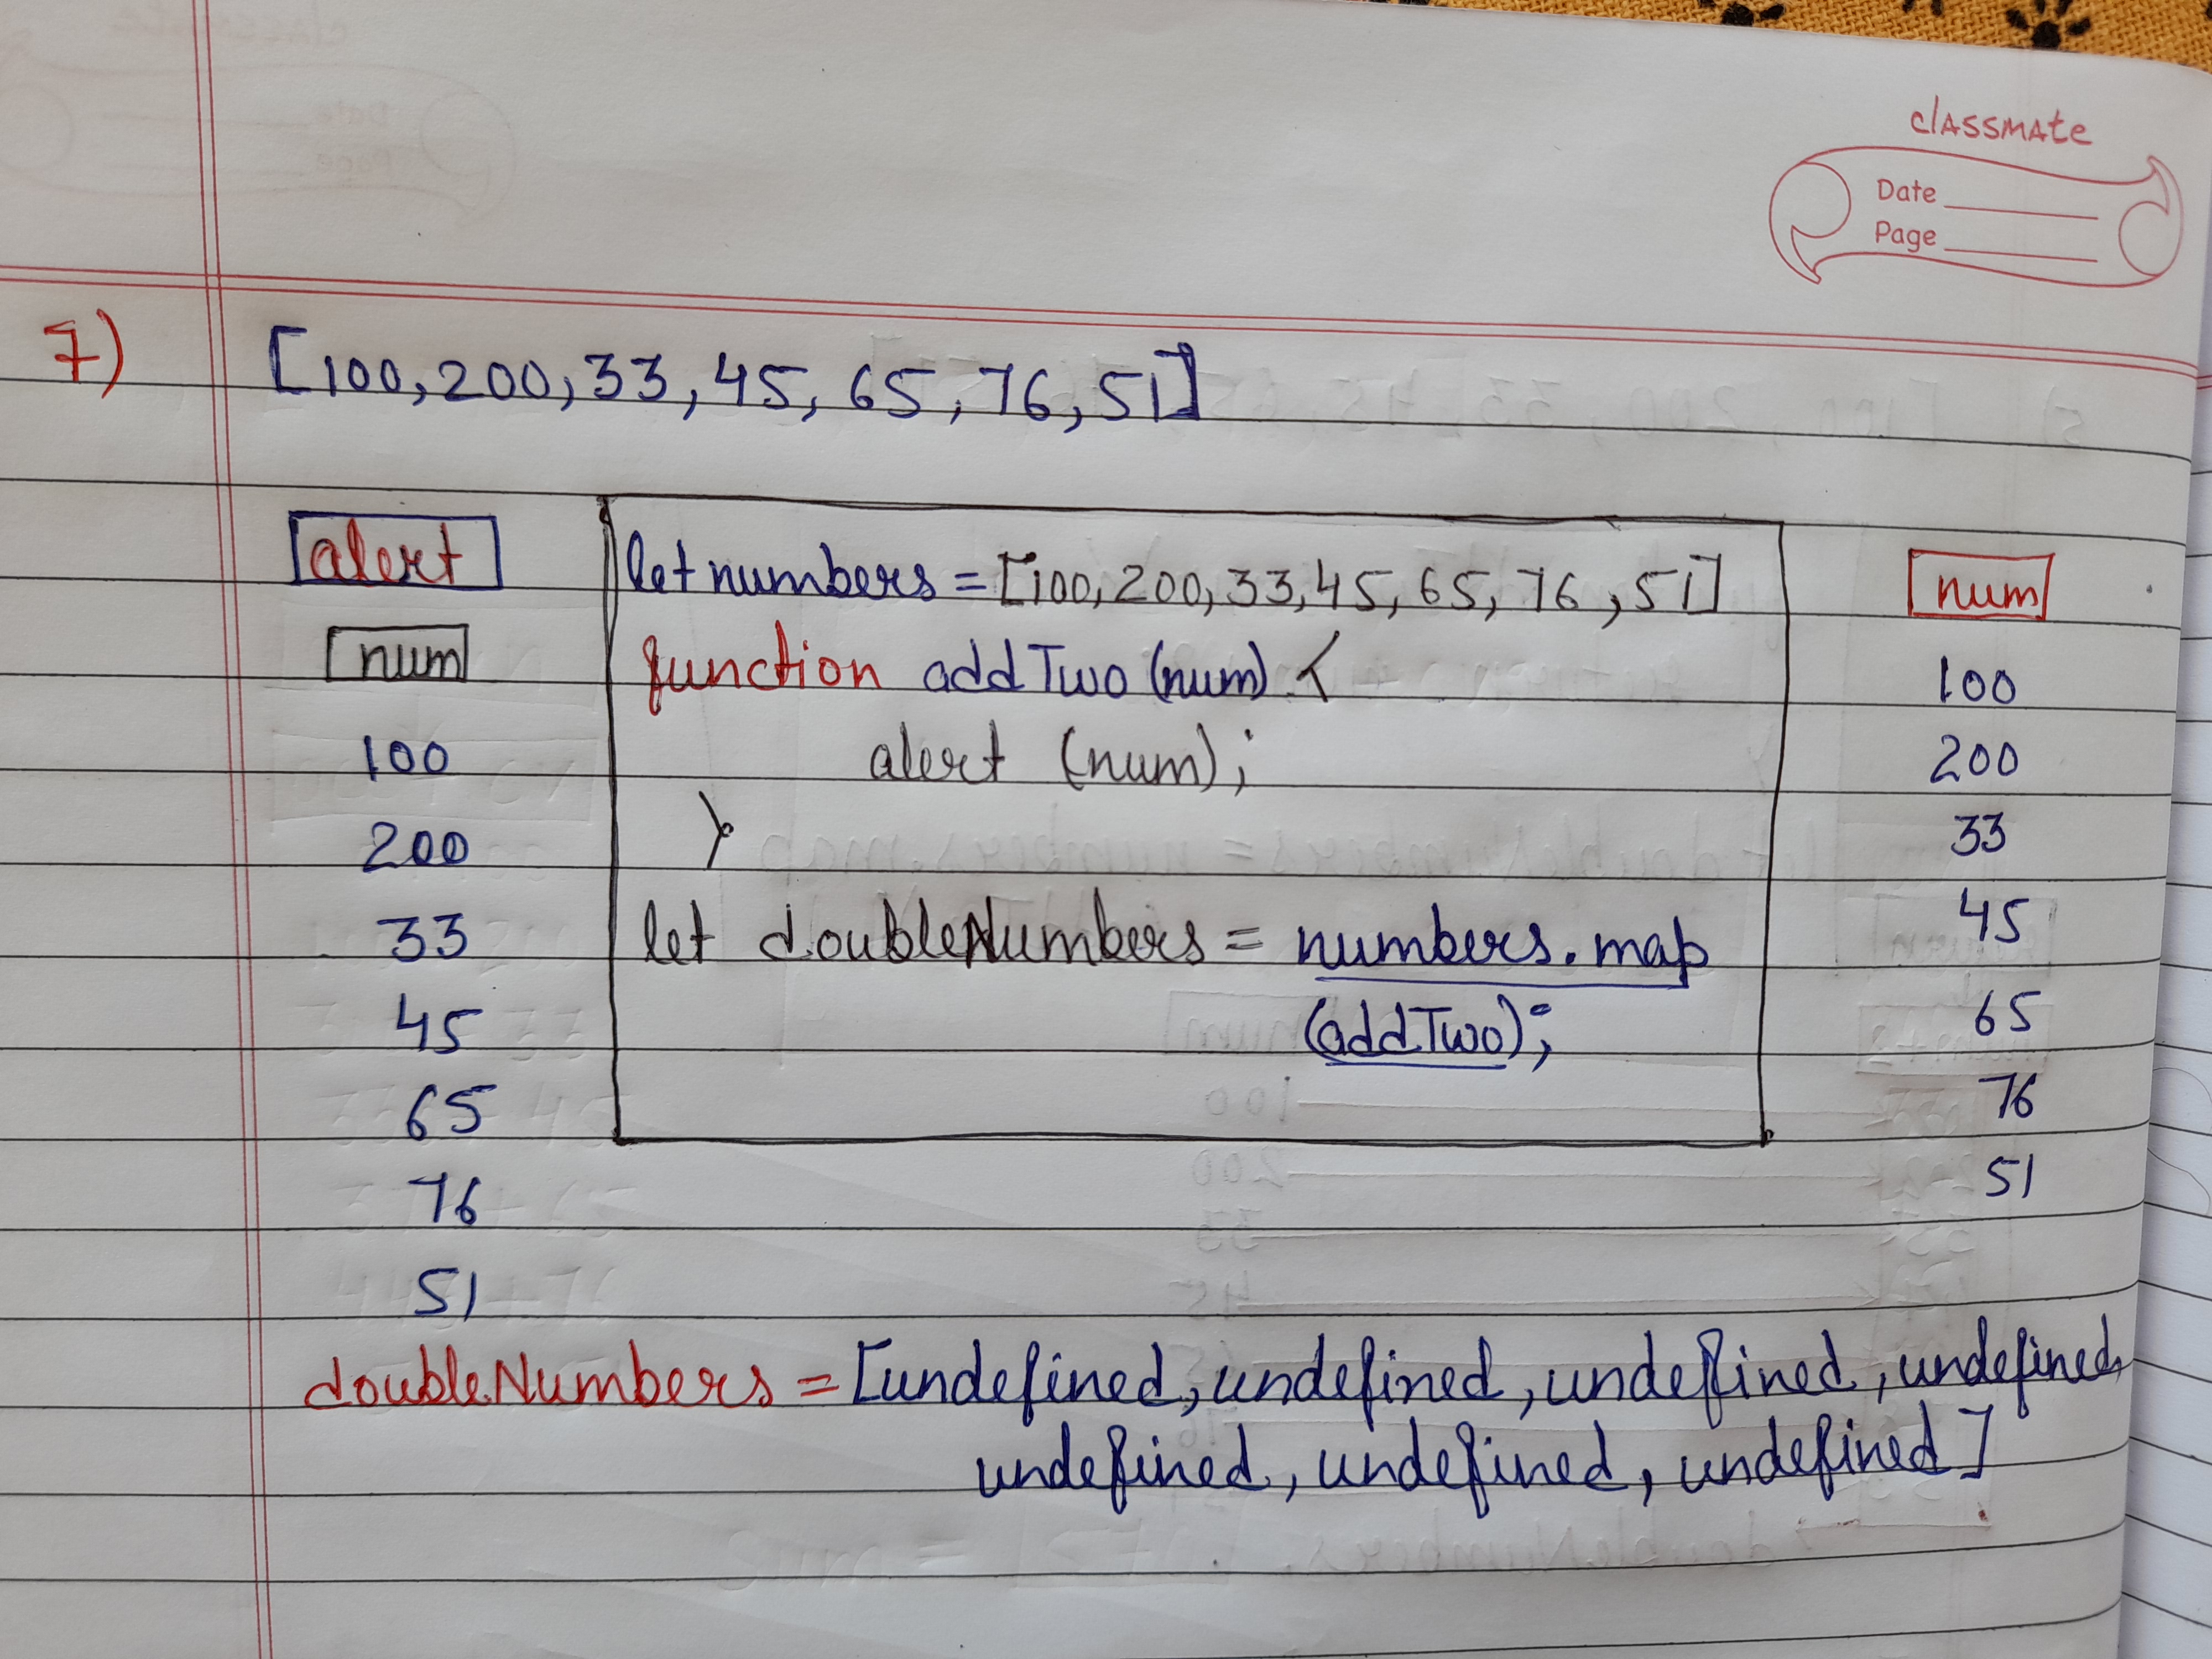 classmate
Date
Page
7) [100,200,33,45,65,76,51]
alert
num
100
200
33
45
65
76
51
let numbers=[100,200,33,45,65,76,51]
function addTwo(num){
alert (num);
}
let doubleNumbers = numbers.map
(addTwo);
num
100
200
33
45
65
76
51
doubleNumbers = [undefined, undefined, undefined, undefined,
undefined, undefined, undefined]